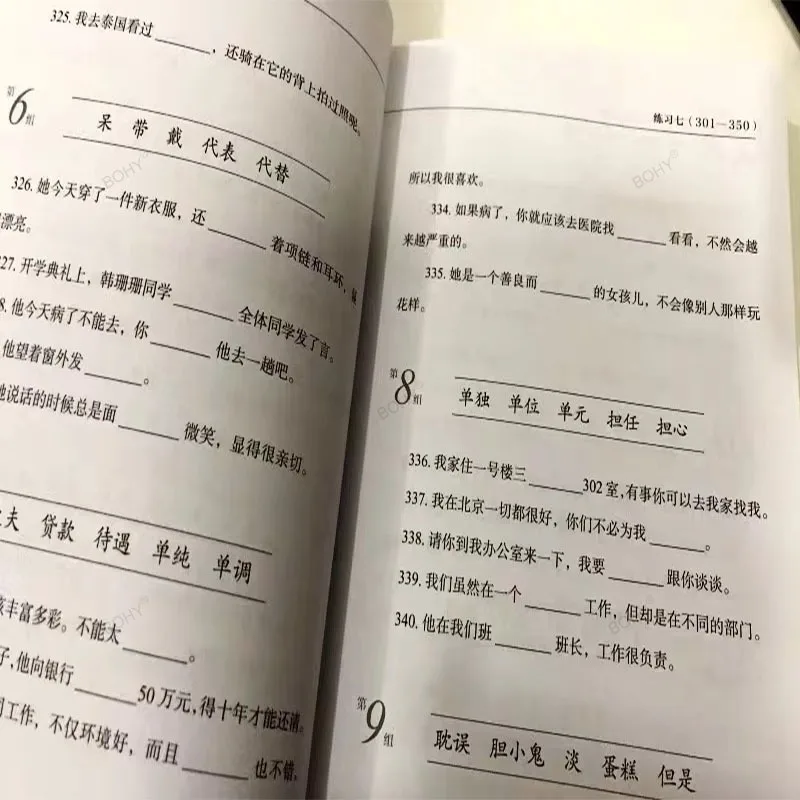 325. 我去泰国看过______，还骑在它的背上拍过照呢。
第6组
呆 带 戴 代表 代替
326. 她今天穿了一件新衣服，还______着项链和耳环，
漂亮。
27. 开学典礼上，韩珊珊同学______全体同学发了言。
8. 他今天病了不能去，你______他去一趟吧。
他望着窗外发______。
她说话的时候总是面______微笑，显得很亲切。
夫 贷款 待遇 单纯 单调
该丰富多彩。不能太______。
子，他向银行______50万元，得十年才能还清。
司工作，不仅环境好，而且______也不错，
练习七（301—350）
所以我很喜欢。
334. 如果病了，你就应该去医院找______看看，不然会越
来越严重的。
335. 她是一个善良而______的女孩儿，不会像别人那样玩
花样。
第8组
单独 单位 单元 担任 担心
336. 我家住一号楼三______302室，有事你可以去我家找我。
337. 我在北京一切都很好，你们不必为我______。
338. 请你到我办公室来一下，我要______跟你谈谈。
339. 我们虽然在一个______工作，但却是在不同的部门。
340. 他在我们班______班长，工作很负责。
第9组
耽误 胆小鬼 淡 蛋糕 但是
BOHY®
BOHY®
BOHY®
BOHY®
BOHY®